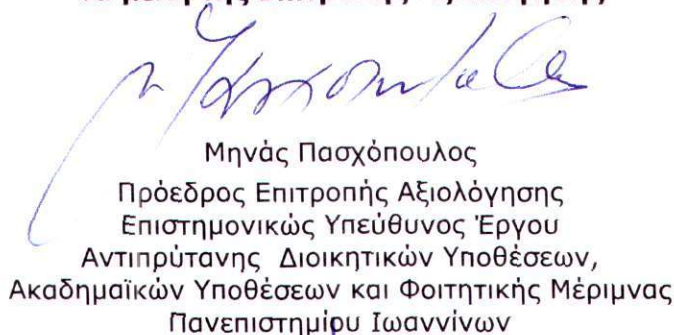 Μηνάς Πασχόπουλος
Πρόεδρος Επιτροπής Αξιολόγησης
Επιστημονικώς Υπεύθυνος Έργου
Αντιπρύτανης Διοικητικών Υποθέσεων,
Ακαδημαϊκών Υποθέσεων και Φοιτητικής Μέριμνας
Πανεπιστημίου Ιωαννίνων